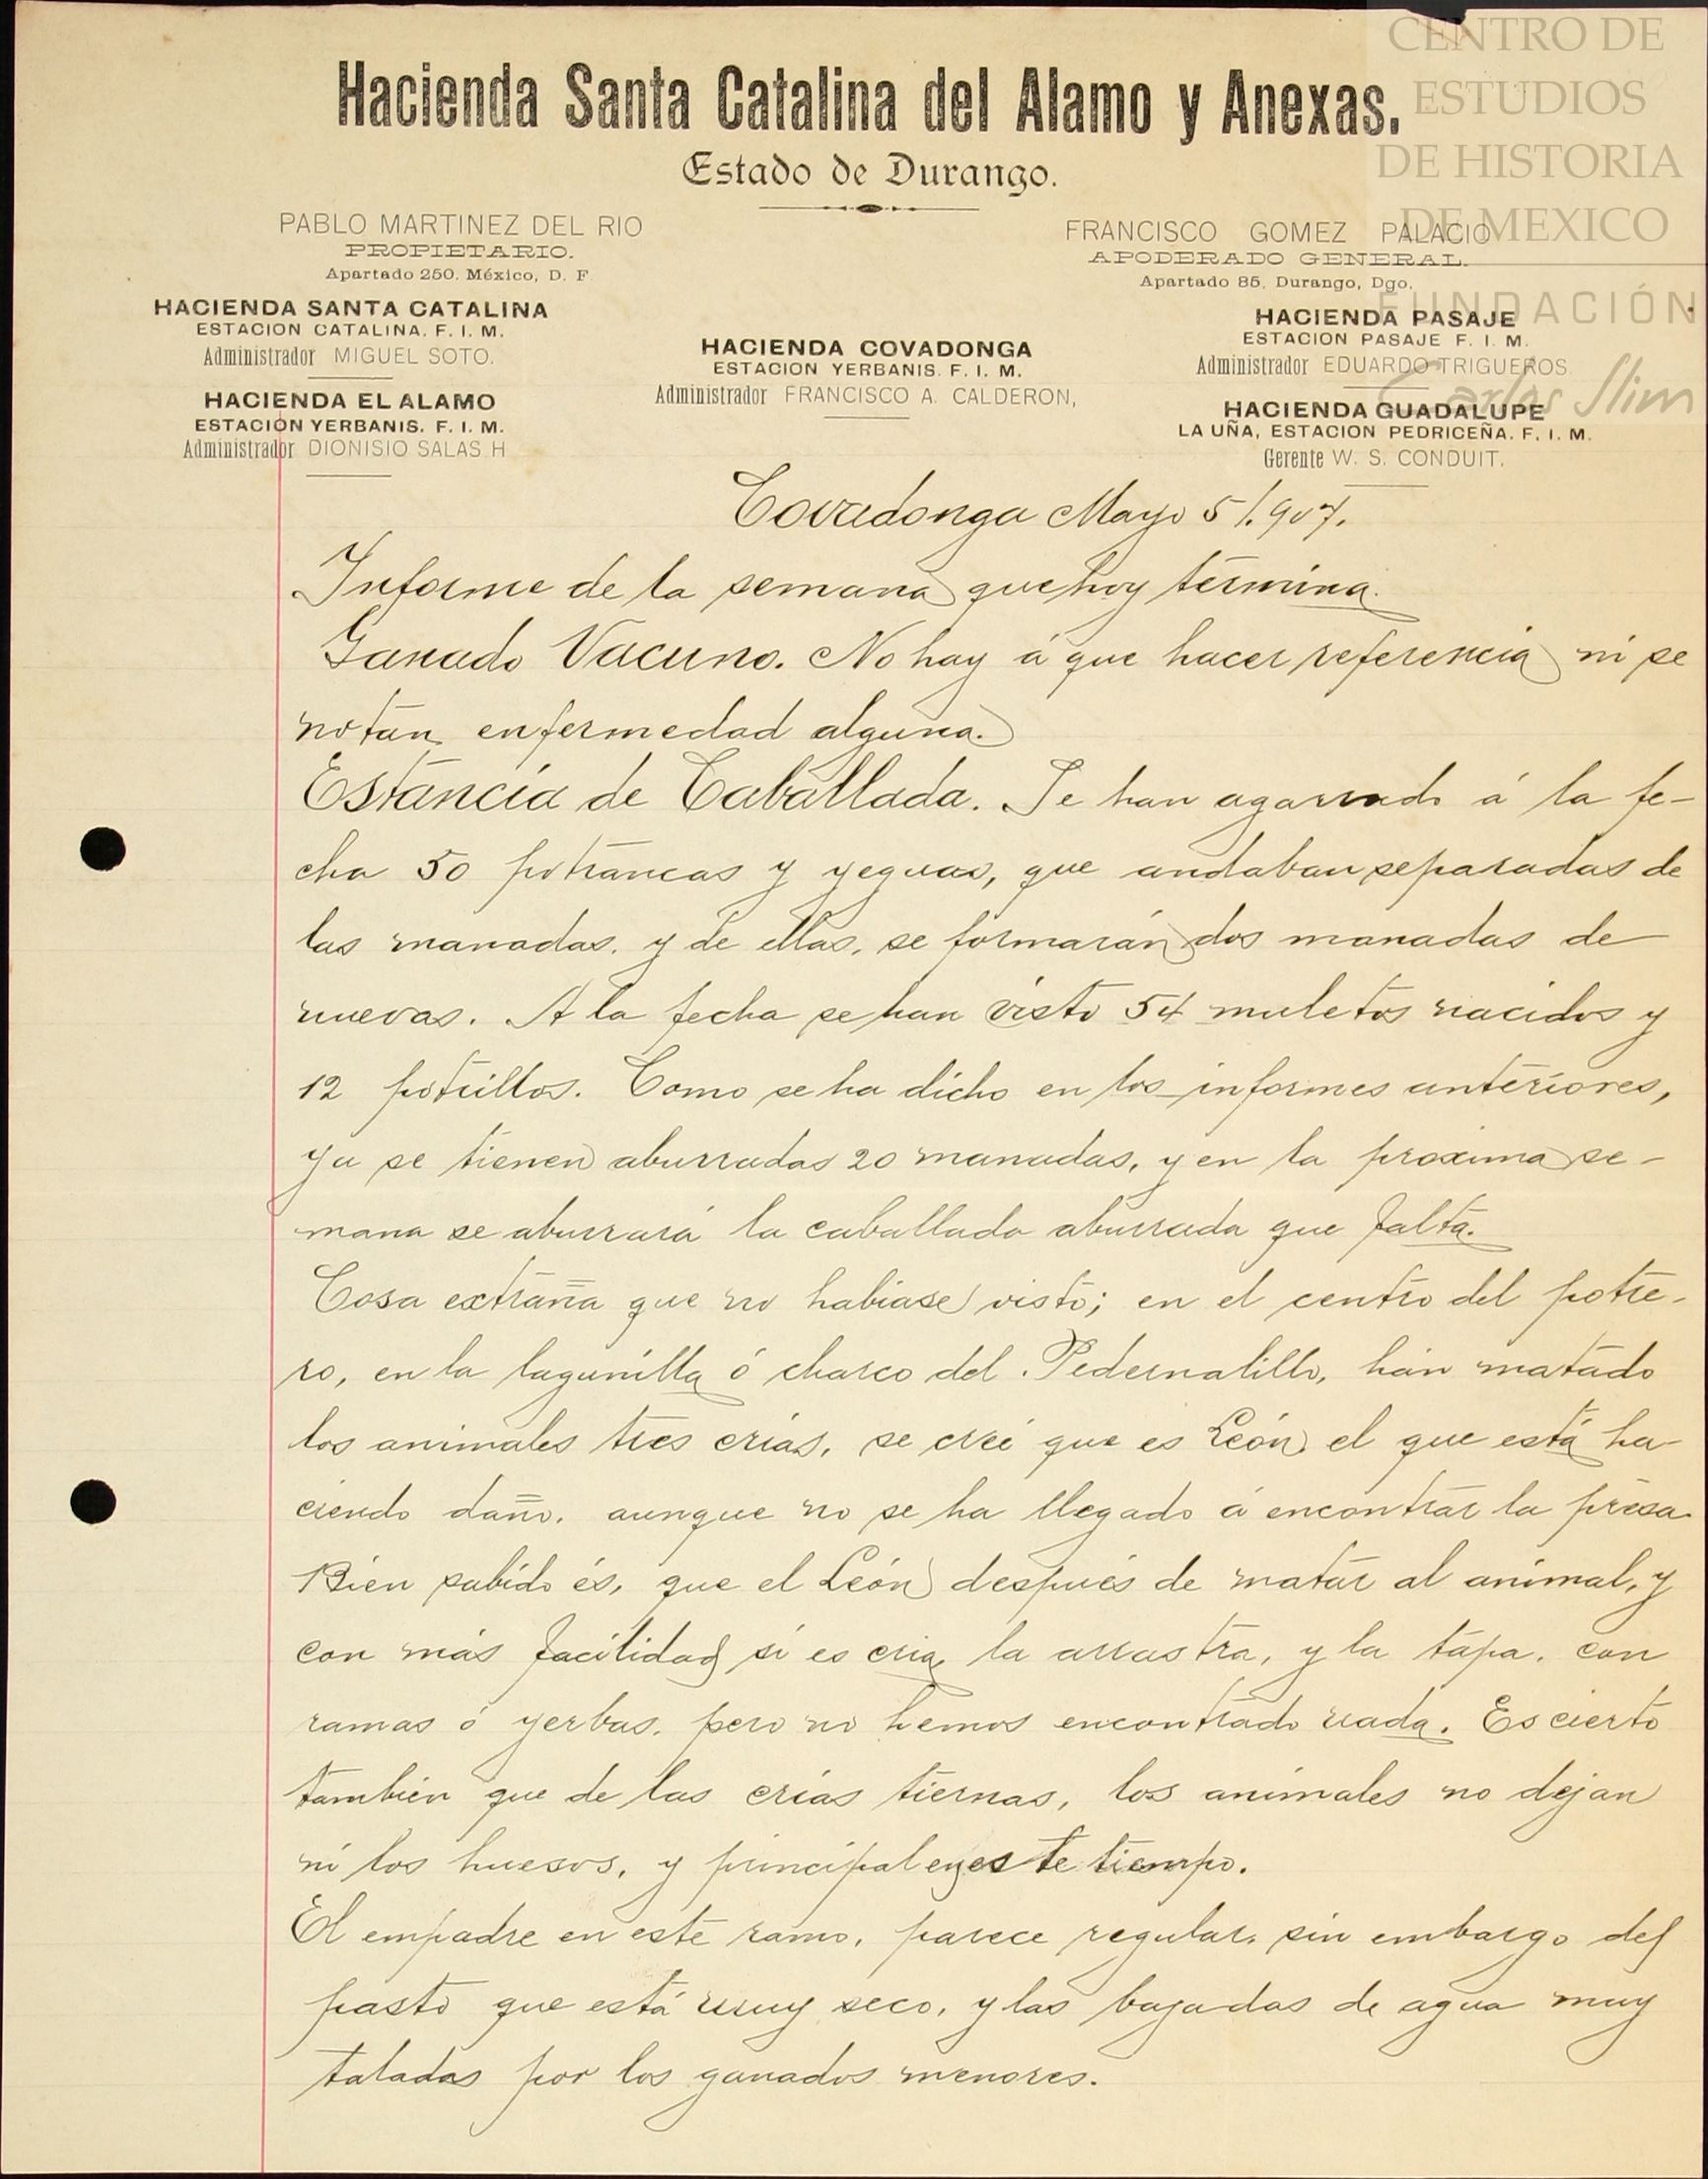 CENTRO DE
ESTUDIOS
DE HISTORIA
DE MEXICO
FUNDACIÓN
Carlos Slim
Hacienda Santa Catalina del Alamo y Anexas.
Estado de Durango.
PABLO MARTINEZ DEL RIO
PROPIETARIO.
Apartado 250. México, D. F
FRANCISCO GOMEZ PALACIO
APODERADO GENERAL.
Apartado 85, Durango, Dgo.
HACIENDA SANTA CATALINA
ESTACION CATALINA. F. I. M.
Administrador MIGUEL SOTO.
HACIENDA EL ALAMO
ESTACION YERBANIS. F. I. M.
Administrador DIONISIO SALAS H
HACIENDA COVADONGA
ESTACION YERBANIS. F. I. M.
Administrador FRANCISCO A. CALDERON,
HACIENDA PASAJE
ESTACION PASAJE F. I. M.
Administrador EDUARDO TRIGUEROS.
HACIENDA GUADALUPE
LA UÑA, ESTACION PEDRICEÑA. F. I. M.
Gerente W. S. CONDUIT.
Covadonga Mayo 5/.907.
Informe de la semana que hoy termina.
Ganado Vacuno. No hay á que hacer referencia ni se
notan enfermedad alguna.
Estancia de Caballada. Se han agarrado á la fe-
cha 50 potrancas y yeguas, que andaban separadas de
las manadas. y de ellas, se formarán dos manadas de
nuevas. A la fecha se han visto 54 muletos nacidos y
12 potrillos. Como se ha dicho en los informes anteriores,
ya se tienen aburradas 20 manadas, y en la proxima se-
mana se aburrará la caballada aburrada que falta.
Cosa extraña que no habiase visto; en el centro del potre-
ro, en la lagunilla ó charco del Pedernalillo, han matado
los animales tres crias, se creé que es León el que está ha-
ciendo daño. aunque no se ha llegado á encontrar la presa.
Bien sabido és, que el León después de matar al animal, y
con más facilidad si es cria, la arrastra, y la tapa. con
ramas ó yerbas. pero no hemos encontrado nada. Es cierto
también que de las crias tiernas, los animales no dejan
ni los huesos, y principal en este tiempo.
El empadre en este ramo, parece regular. sin embargo del
pasto que está muy seco, y las bajadas de agua muy
taladas por los ganados menores.